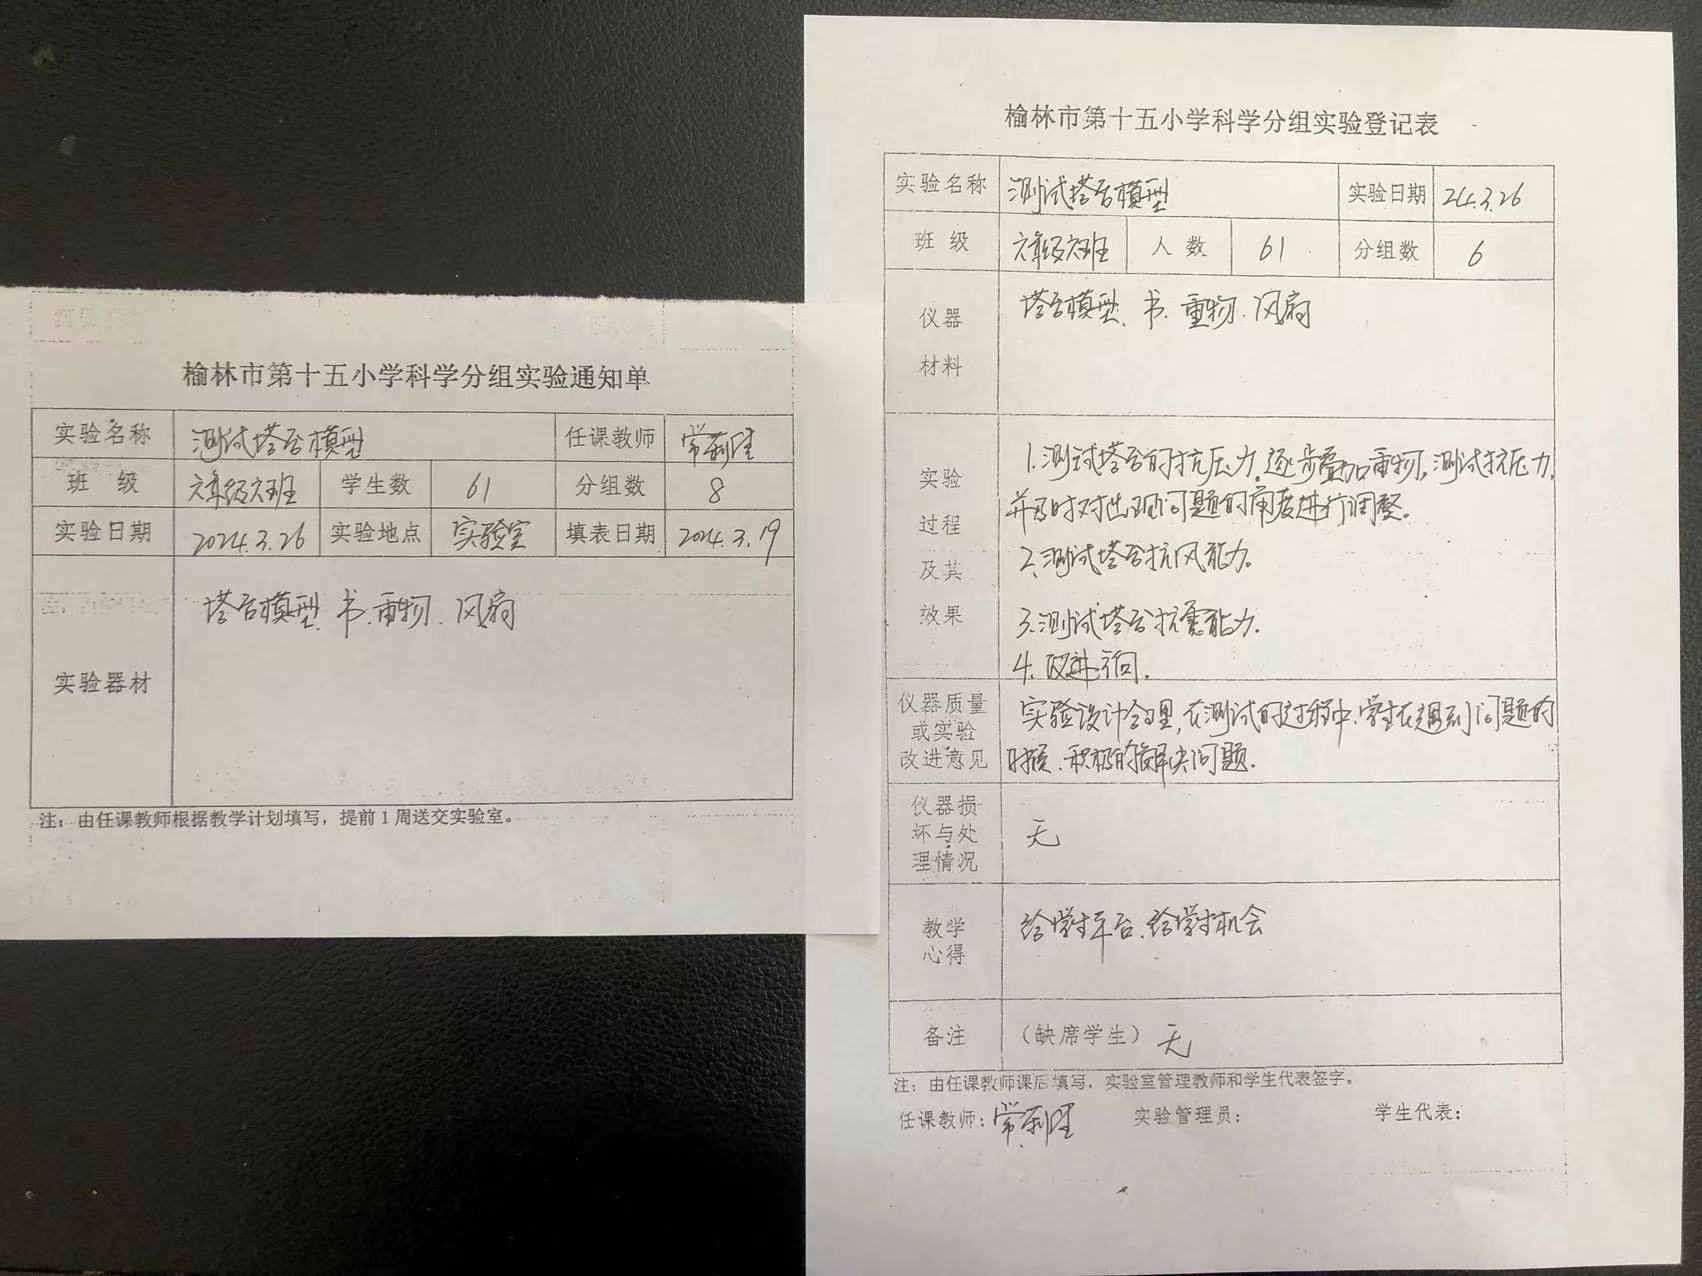 榆林市第十五小学科学分组实验通知单
实验名称 测试塔台模型 任课教师 常莉
班 级 六年级六班 学生数 61 分组数 8
实验日期 2024.3.26 实验地点 实验室 填表日期 2024.3.19
实验器材 塔台模型、书、重物、风扇
注:由任课教师根据教学计划填写,提前1周送交实验室。
榆林市第十五小学科学分组实验登记表
实验名称 测试塔台模型 实验日期 24.3.26
班 级 六年级六班 人 数 61 分组数 6
仪器
材料
塔台模型、书、重物、风扇
实验
过程
及其
效果
1.测试塔台的抗压力,逐步叠加重物,测试抗压力,
并及时对出现问题的角度进行调整。
2.测试塔台抗风能力。
3.测试塔台抗震能力.
4.改进方向.
仪器质量
或实验
改进意见
实验设计合理,在测试的过程中,学生在遇到问题的
时候、积极的解决问题.
仪器损
坏与处
理情况
无
教学
心得
给学生平台、给学生机会
备注 (缺席学生) 无
注:由任课教师课后填写,实验室管理教师和学生代表签字。
任课教师: 常莉 实验管理员: 学生代表: